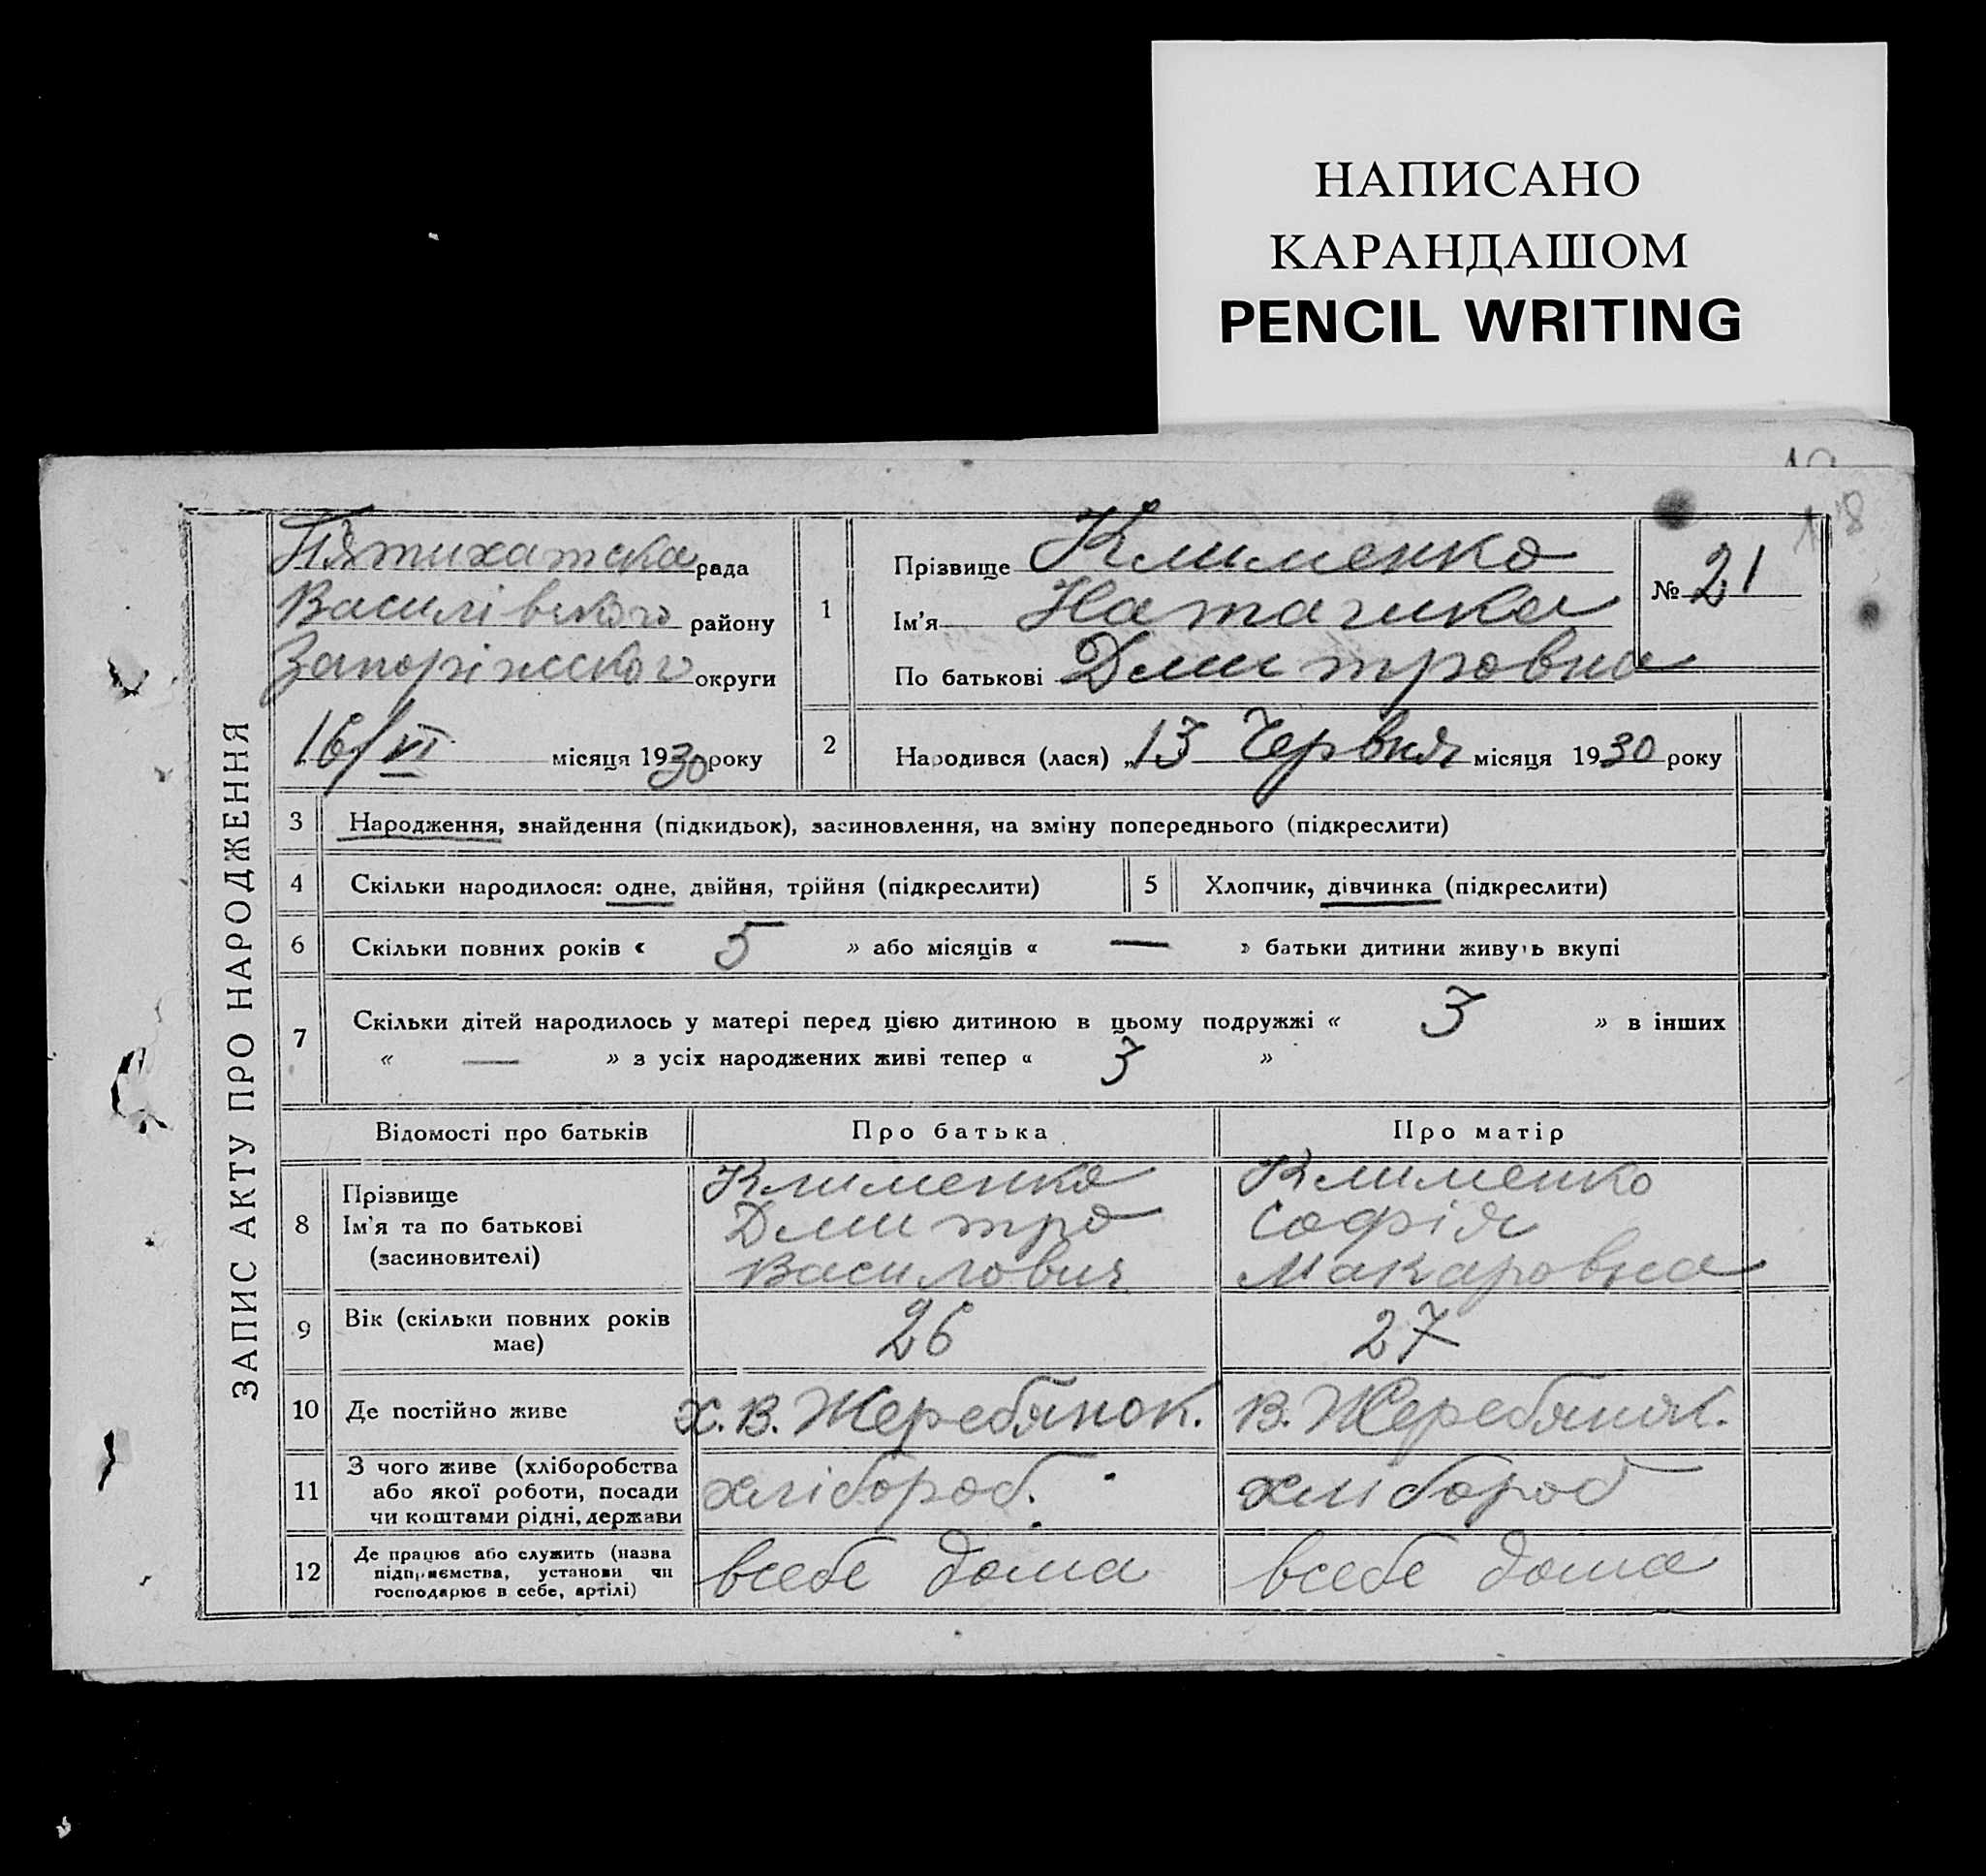 НАПИСАНО
КАРАНДАШОМ
PENCIL WRITING
118
ЗАПИС АКТУ ПРО НАРОДЖЕННЯ
Пятихатска рада
Василівского району
Запоріжского округи
16/VI місяця 1930 року
1
Прізвище Клименко
Ім'я Наталика
По батькові Дмитровна
№ 21
2
Народився (лася) „13 Червня місяця 1930 року
3 Народження, знайдення (підкидьок), засиновлення, на зміну попереднього (підкреслити)
4 Скільки народилося: одне, двійня, трійня (підкреслити)
5 Хлопчик, дівчинка (підкреслити)
6 Скільки повних років « 5 » або місяців « — » батьки дитини живуть вкупі
7 Скільки дітей народилось у матері перед цією дитиною в цьому подружжі « 3 » в інших
« — » з усіх народжених живі тепер « 3 »
Відомості про батьків Про батька Про матір
8 Прізвище
Ім'я та по батькові
(засиновителі)
Клименко
Дмитро
Василович
Клименко
Софія
Макаровна
9 Вік (скільки повних років
має)
26
27
10 Де постійно живе
х. В. Жеребянок.
В. Жеребянок.
11 З чого живе (хліборобства
або якої роботи, посади
чи коштами рідні, держави
хлібороб.
хлібороб
12 Де працює або служить (назва
підприємства, установи чи
господарює в себе, артілі)
всебе дома
всебе дома